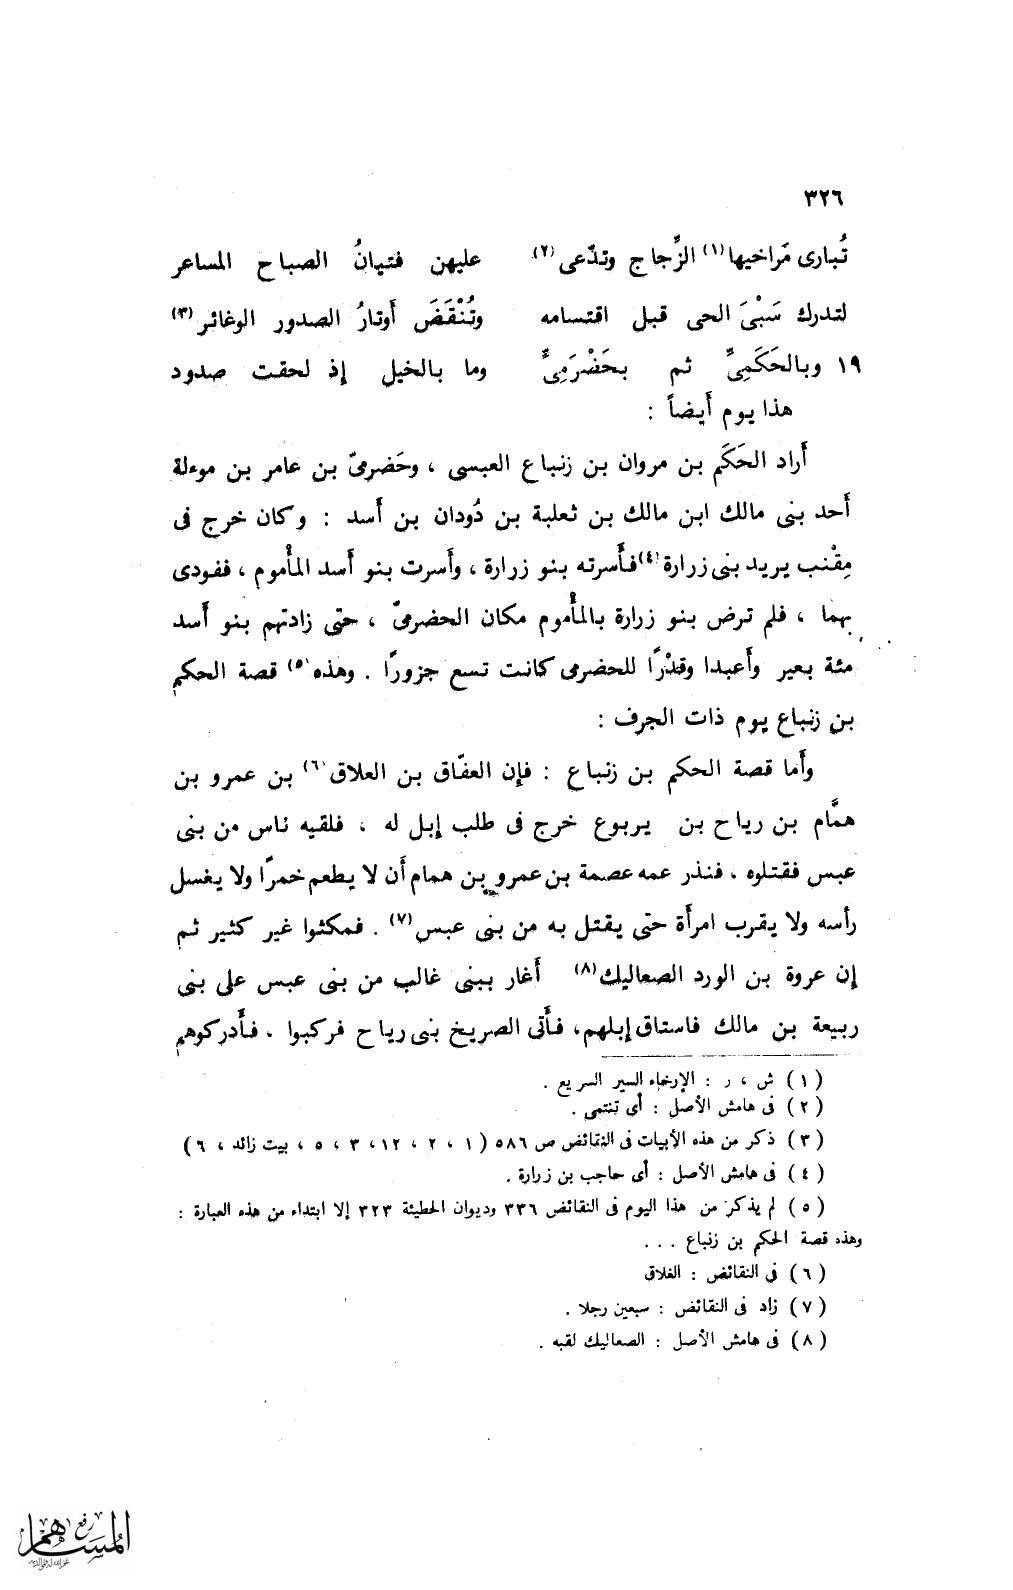 ٣٢٦
تُبارى مَراخيها(١) الزِّجاج وتدّعى(٢) عليهن فتيانُ الصباح المساعر
لتدرك سَبْىَ الحى قبل اقتسامه وتُنْقَضَ أَوتارُ الصدور الوغائر(٣)
١٩ وبالحَكَمِىِّ ثم بحَضْرَمِىٍّ وما بالخيل إذ لحقت صدود
هذا يوم أَيضاً :
أَراد الحَكَم بن مروان بن زنباع العبسى ، وحَضرمىّ بن عامر بن موءلة
أَحد بنى مالك ابن مالك بن ثعلبة بن دُودان بن أَسد : وكان خرج فى
مِقْنب يريد بنى زرارة(٤) فأَسرته بنو زرارة ، وأَسرت بنو أَسد المأْموم ، ففودى
بهما ، فلم ترض بنو زرارة بالمأْموم مكان الحضرمىّ ، حتى زادتهم بنو أَسد
مئة بعير وأَعبدا وقدْرًا للحضرمى كانت تسع جزورًا . وهذه(٥) قصة الحكم
بن زنباع يوم ذات الجرف :
وأَما قصة الحكم بن زنباع : فإن العفّاق بن العلاق(٦) بن عمرو بن
همَّام بن رياح بن يربوع خرج فى طلب إبل له ، فلقيه ناس من بنى
عبس فقتلوه ، فنذر عمه عصمة بن عمرو بن همام أَن لا يطعم خمرًا ولا يغسل
رأسه ولا يقرب امرأَة حتى يقتل به من بنى عبس(٧) . فمكثوا غير كثير ثم
إن عروة بن الورد الصعاليك(٨) أَغار ببنى غالب من بنى عبس على بنى
ربيعة بن مالك فاستاق إبلهم، فأَتى الصريخ بنى رياح فركبوا . فأَدركوهم
(١) ش ، ر : الإرخاء السير السريع .
(٢) فى هامش الأصل : أى تنتمى .
(٣) ذكر من هذه الأبيات فى النقائض ص ٥٨٦ (١ ، ٢ ، ١٢ ، ٣ ، ٥ ، بيت زائد ، ٦ )
(٤) فى هامش الأصل : أى حاجب بن زرارة .
(٥) لم يذكر من هذا اليوم فى النقائض ٣٣٦ وديوان الحطيئة ٣٢٣ إلا ابتداء من هذه العبارة :
وهذه قصة الحكم بن زنباع . . .
(٦) فى النقائض : الغلاق
(٧) زاد فى النقائض : سبعين رجلا .
(٨) فى هامش الأصل : الصعاليك لقبه .